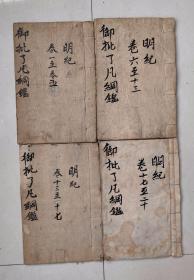 御批了凡綱鑑
明紀
卷一至卷五
御批了凡綱鑑
明紀
卷六至十三
御批了凡綱鑑
明紀
卷十三至十七
御批了凡綱鑑
明紀
卷十七至二十